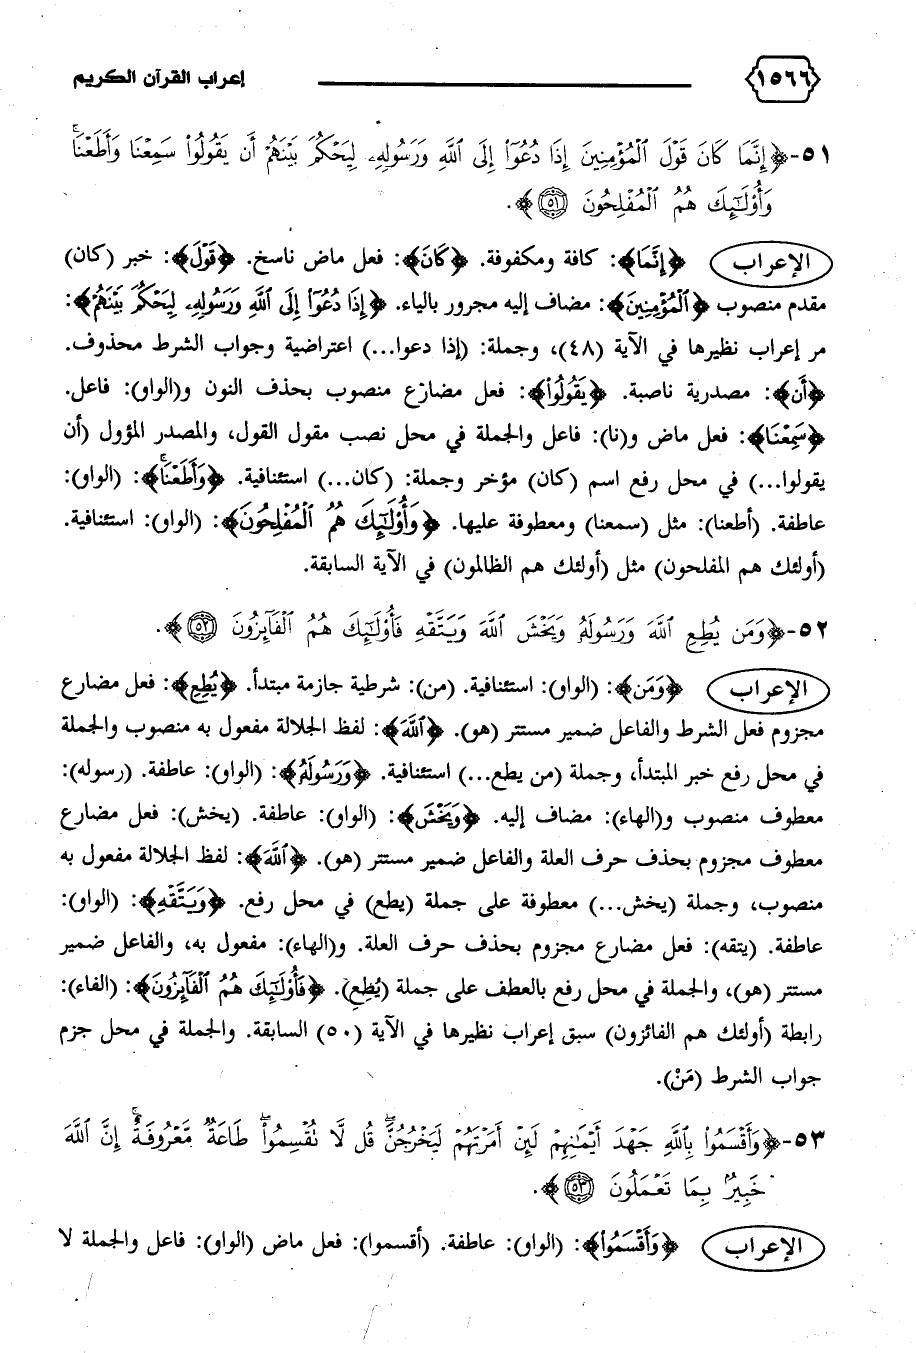 ١٥٦٦ إعراب القرآن الكريم
٥١- ﴿إِنَّمَا كَانَ قَوْلَ ٱلْمُؤْمِنِينَ إِذَا دُعُوٓا۟ إِلَى ٱللَّهِ وَرَسُولِهِۦ لِيَحْكُمَ بَيْنَهُمْ أَن يَقُولُوا۟ سَمِعْنَا وَأَطَعْنَا ۚ
وَأُو۟لَـٰٓئِكَ هُمُ ٱلْمُفْلِحُونَ ﴿٥١﴾﴾.
الإعراب ﴿إِنَّمَا﴾: كافة ومكفوفة. ﴿كَانَ﴾: فعل ماض ناسخ. ﴿قَوْلَ﴾: خبر (كان)
مقدم منصوب ﴿ٱلْمُؤْمِنِينَ﴾: مضاف إليه مجرور بالياء. ﴿إِذَا دُعُوٓا۟ إِلَى ٱللَّهِ وَرَسُولِهِۦ لِيَحْكُمَ بَيْنَهُمْ﴾:
مر إعراب نظيرها في الآية (٤٨)، وجملة: (إذا دعوا...) اعتراضية وجواب الشرط محذوف.
﴿أَن﴾: مصدرية ناصبة. ﴿يَقُولُوا۟﴾: فعل مضارع منصوب بحذف النون و(الواو): فاعل.
﴿سَمِعْنَا﴾: فعل ماض و(نا): فاعل والجملة في محل نصب مقول القول، والمصدر المؤول (أن
يقولوا...) في محل رفع اسم (كان) مؤخر وجملة: (كان...) استئنافية. ﴿وَأَطَعْنَا ۚ﴾: (الواو):
عاطفة. (أطعنا): مثل (سمعنا) ومعطوفة عليها. ﴿وَأُو۟لَـٰٓئِكَ هُمُ ٱلْمُفْلِحُونَ﴾: (الواو): استئنافية.
(أولئك هم المفلحون) مثل (أولئك هم الظالمون) في الآية السابقة.
٥٢- ﴿وَمَن يُطِعِ ٱللَّهَ وَرَسُولَهُۥ وَيَخْشَ ٱللَّهَ وَيَتَّقْهِ فَأُو۟لَـٰٓئِكَ هُمُ ٱلْفَآئِزُونَ ﴿٥٢﴾﴾.
الإعراب ﴿وَمَن﴾: (الواو): استئنافية. (من): شرطية جازمة مبتدأ. ﴿يُطِعِ﴾: فعل مضارع
مجزوم فعل الشرط والفاعل ضمير مستتر (هو). ﴿ٱللَّهَ﴾: لفظ الجلالة مفعول به منصوب والجملة
في محل رفع خبر المبتدأ، وجملة (من يطع...) استئنافية. ﴿وَرَسُولَهُۥ﴾: (الواو): عاطفة. (رسوله):
معطوف منصوب و(الهاء): مضاف إليه. ﴿وَيَخْشَ﴾: (الواو): عاطفة. (يخش): فعل مضارع
معطوف مجزوم بحذف حرف العلة والفاعل ضمير مستتر (هو). ﴿ٱللَّهَ﴾: لفظ الجلالة مفعول به
منصوب، وجملة (يخش...) معطوفة على جملة (يطع) في محل رفع. ﴿وَيَتَّقْهِ﴾: (الواو):
عاطفة. (يتقه): فعل مضارع مجزوم بحذف حرف العلة. و(الهاء): مفعول به، والفاعل ضمير
مستتر (هو)، والجملة في محل رفع بالعطف على جملة (يُطِعِ). ﴿فَأُو۟لَـٰٓئِكَ هُمُ ٱلْفَآئِزُونَ﴾: (الفاء):
رابطة (أولئك هم الفائزون) سبق إعراب نظيرها في الآية (٥٠) السابقة. والجملة في محل جزم
جواب الشرط (مَنْ).
٥٣- ﴿وَأَقْسَمُوا۟ بِٱللَّهِ جَهْدَ أَيْمَـٰنِهِمْ لَئِنْ أَمَرْتَهُمْ لَيَخْرُجُنَّ ۖ قُل لَّا تُقْسِمُوا۟ ۖ طَاعَةٌ مَّعْرُوفَةٌ ۚ إِنَّ ٱللَّهَ
خَبِيرٌۢ بِمَا تَعْمَلُونَ ﴿٥٣﴾﴾.
الإعراب ﴿وَأَقْسَمُوا۟﴾: (الواو): عاطفة. (أقسموا): فعل ماض (الواو): فاعل والجملة لا